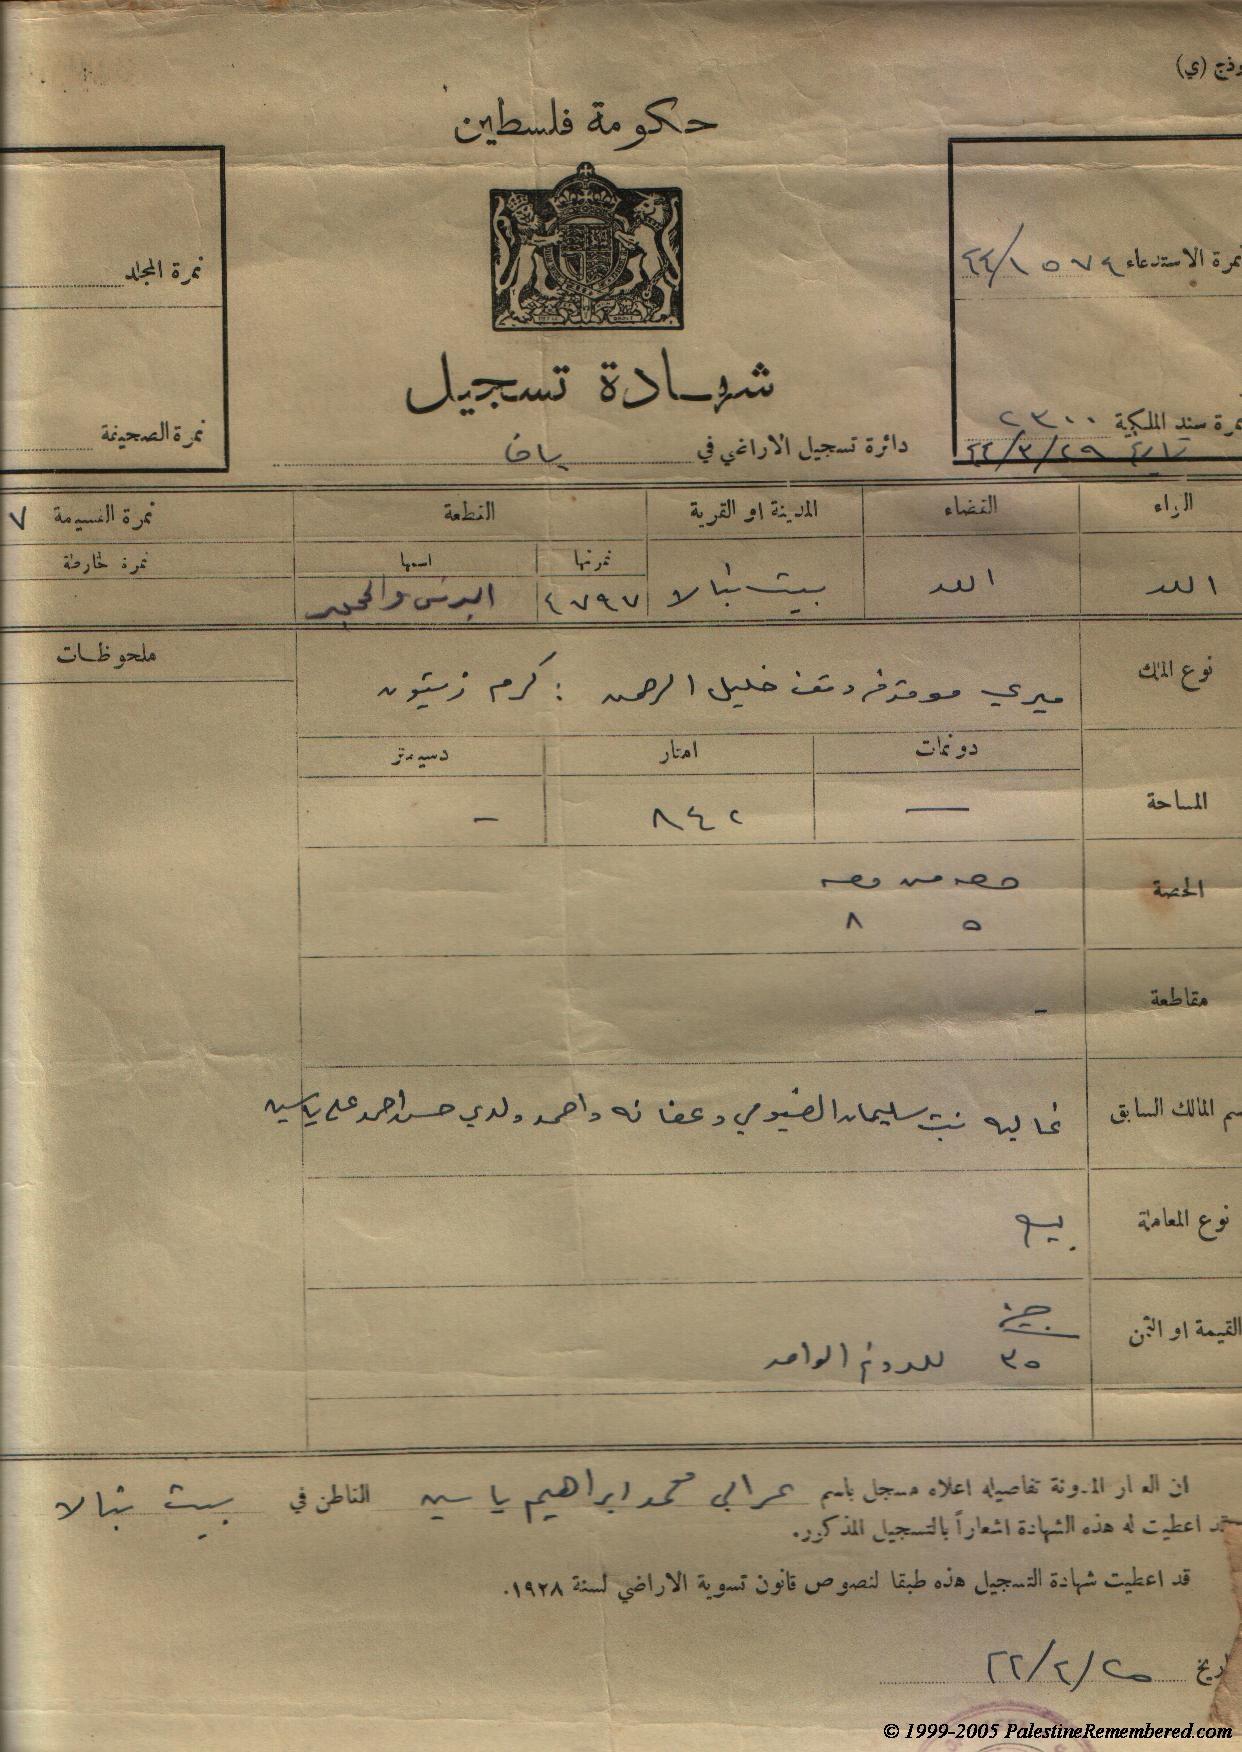 وذج (ي)
حكومة فلسطين
نمرة الاستدعاء
نمرة المجلد
شهادة تسجيل
نمرة الصحيفة
مرة سند الملكية ٢٣٠٠
تاريخ
دائرة تسجيل الاراضي في يافا
اللواء القضاء المدينة او القرية القطعة نمرة القسيمة ٧
نمرتها اسمها نمرة خارطة
اللد اللد بيت نبالا ٤٧٩٧
نوع الملك ميري موقوفه وقف خليل الرحمن : كرم زيتون
ملحوظات
دونمات امتار دسيمتر
المساحة — ٨٤٢ -
الحصة حصه من حصه
٥ ٨
مقاطعة -
سم المالك السابق غاليه بنت سليمان الفيومي وعفانه واحمد ولدي حسن احمد علي ياسين
نوع المعاملة بيع
القيمة او الثمن جنيه
٣٥ للدونم الواحد
ان العقار المدونة تفاصيله اعلاه مسجل باسم عرابي محمد ابراهيم ياسين القاطن في بيت نبالا
قد اعطيت له هذه الشهادة اشعاراً بالتسجيل المذكور.
قد اعطيت شهادة التسجيل هذه طبقا لنصوص قانون تسوية الاراضي لسنة ١٩٢٨.
اريخ
© 1999-2005 PalestineRemembered.com